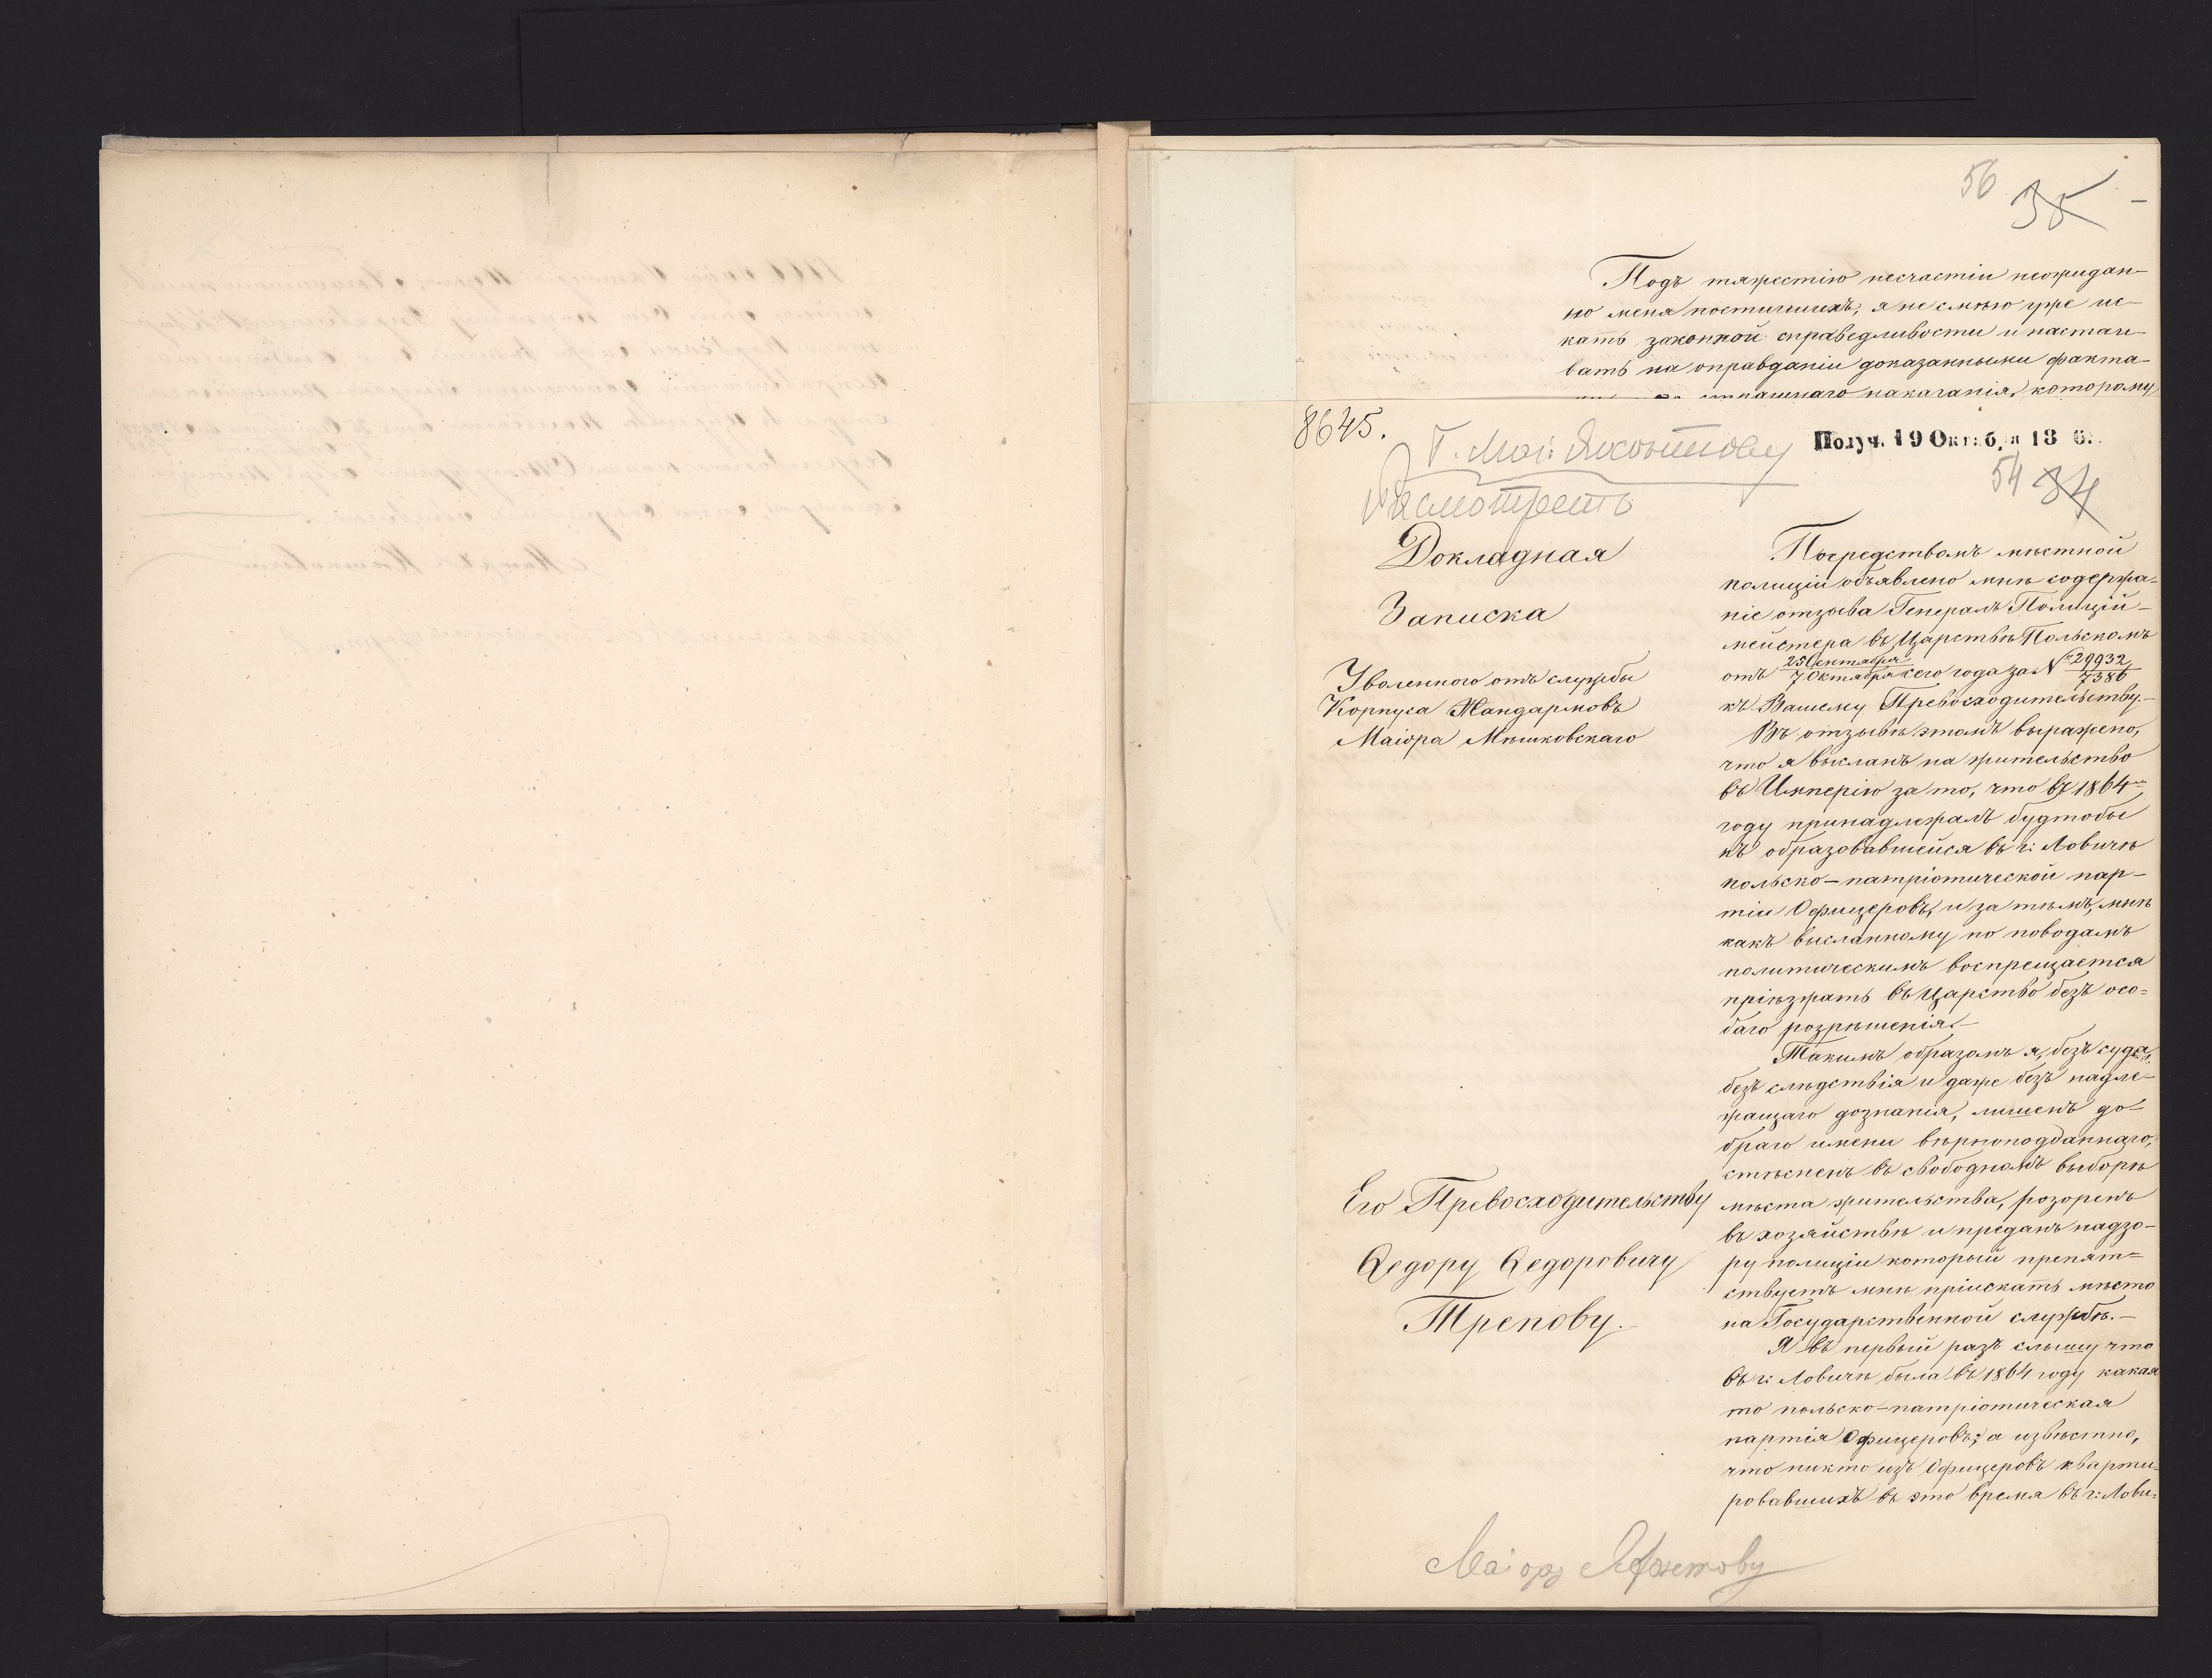 56 35
Подъ тяжестію несчастіи неожидан-
но меня постигшихъ, я не смѣю уже ис-
кать законной справедливости и настаи-
вать на оправданіи доказанными факта-
страшнаго наказанія, которому
8645.
Г. Маі:
Получ. 19 Октяб.я 18 6.
разсмотреть
54 34
Докладная
Записка
Уволенного отъ службы
Корпуса Жандармовъ
Маіора Мѣшковскаго
Его Превосходительству
Ѳедору Ѳедоровичу
Трепову.
Посредствомъ мѣстной
полиціи объявлено мнѣ содержа-
ніе отзыва Генералъ Полицій-
мейстера въ Царствѣ Польскомъ
отъ 25 Сентября / 7 Октября сего года за № 29932 / 7386
къ Вашему Превосходительству.-
Въ отзывѣ этомъ выражено,
что я высланъ на жительство
въ Имперію за то, что въ 1864м
году принадлежалъ будтобы
къ образовавшейся въ г: Ловичѣ
польско-патріотической пар-
тіи Офицеровъ, и за тѣмъ, мнѣ
какъ высланному по поводамъ
политическимъ воспрещается
пріѣзжать въ Царство безъ осо-
баго розрѣшенія.-
Такимъ образомъ я, безъ суда,
безъ слѣдствія и даже безъ надле-
жащаго дознанія, лишенъ до-
браго имени вѣрноподданнаго,
стѣсненъ въ свободномъ выборѣ
мѣста жительства, розоренъ
въ хозяйствѣ и преданъ надзо-
ру полиціи который препят-
ствуетъ мнѣ пріискать мѣсто
на Государственной службѣ.-
Я въ первый разъ слышу что
въ г: Ловичѣ была въ 1864 году какая
то польско-патріотическая
партія Офицеровъ; а извѣстно,
что никто изъ Офицеровъ кварти-
ровавшихъ въ это время въ г: Лови-
Маіору